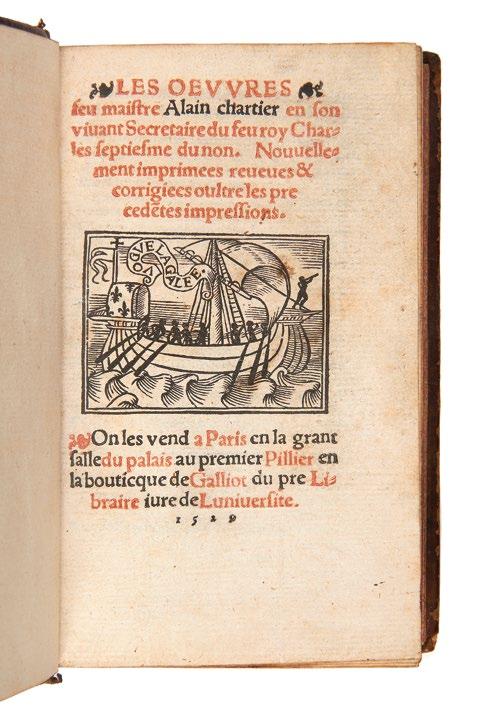 LES OEVVRES
feu maiſtre Alain chartier en ſon
viuant Secretaire du feu roy Char-
les ſeptieſme du non. Nouuelle-
ment imprimees reueues &
corrigiees oultre les pre
cedẽtes impreſſions.
VOGVE LA GALEE
On les vend a Paris en la grant
ſalle du palais au premier Pillier en
la bouticque de Galliot du pre Li-
braire iure de Luniuerſite.
1529